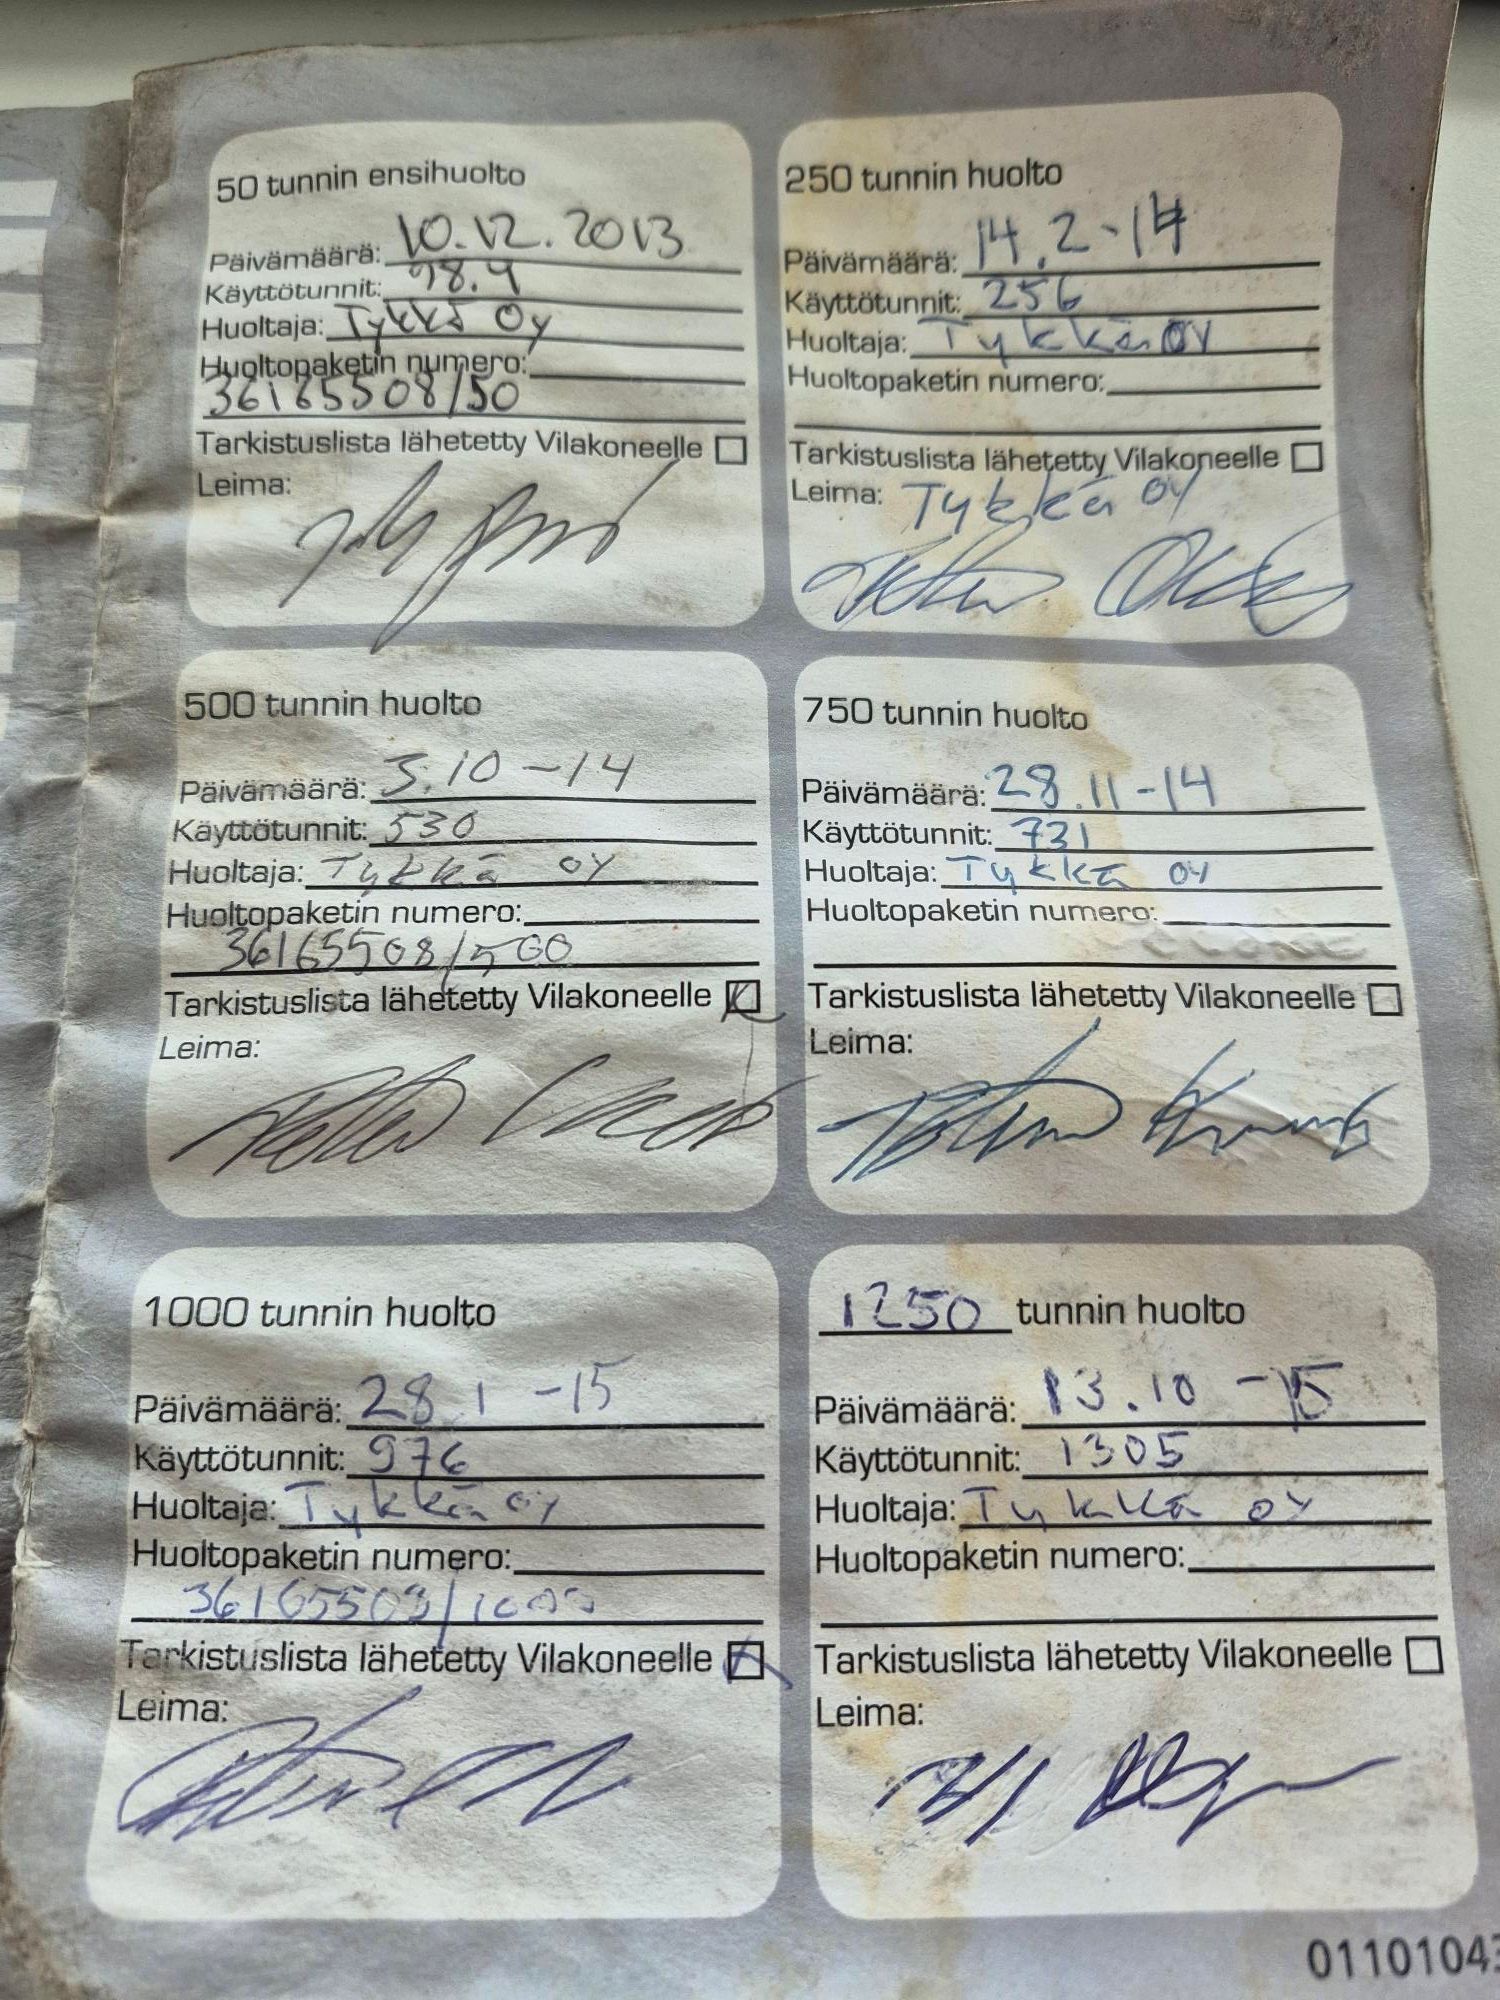 50 tunnin ensihuolto
Päivämäärä: 10.12.2013
Käyttötunnit: 98.4
Huoltaja: Tykkä Oy
Huoltopaketin numero:
36165508/50
Tarkistuslista lähetetty Vilakoneelle
Leima:
250 tunnin huolto
Päivämäärä: 14.2-14
Käyttötunnit: 256
Huoltaja: Tykkä OY
Huoltopaketin numero:
Tarkistuslista lähetetty Vilakoneelle
Leima: Tykkä OY
500 tunnin huolto
Päivämäärä: 3.10-14
Käyttötunnit: 530
Huoltaja: Tykkä OY
Huoltopaketin numero:
36165508/500
Tarkistuslista lähetetty Vilakoneelle
Leima:
750 tunnin huolto
Päivämäärä: 28.11-14
Käyttötunnit: 731
Huoltaja: Tykkä OY
Huoltopaketin numero:
Tarkistuslista lähetetty Vilakoneelle
Leima:
1000 tunnin huolto
Päivämäärä: 28.1-15
Käyttötunnit: 976
Huoltaja: Tykkä OY
Huoltopaketin numero:
36165508/1000
Tarkistuslista lähetetty Vilakoneelle
Leima:
1250 tunnin huolto
Päivämäärä: 13.10-15
Käyttötunnit: 1305
Huoltaja: Tykkä OY
Huoltopaketin numero:
Tarkistuslista lähetetty Vilakoneelle
Leima: